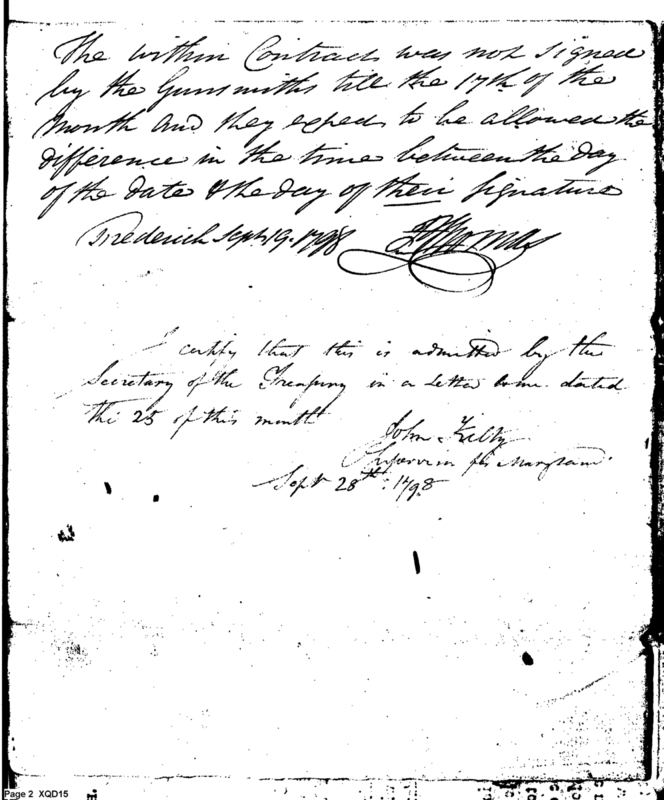 The within Contract was not Signed
by the Gunsmiths till the 17th of the
Month and they expect to be allowed the
difference in the time between the day
of the date & the day of their Signature
Frederick Sept. 19. 1798 Thomas
I certify that this is admitted by the
Secretary of the Treasury in a Letter to me dated
the 25 of this month
John Kilty
Supervisor for Maryland
Sept 28th: 1798
Page 2 XQD15